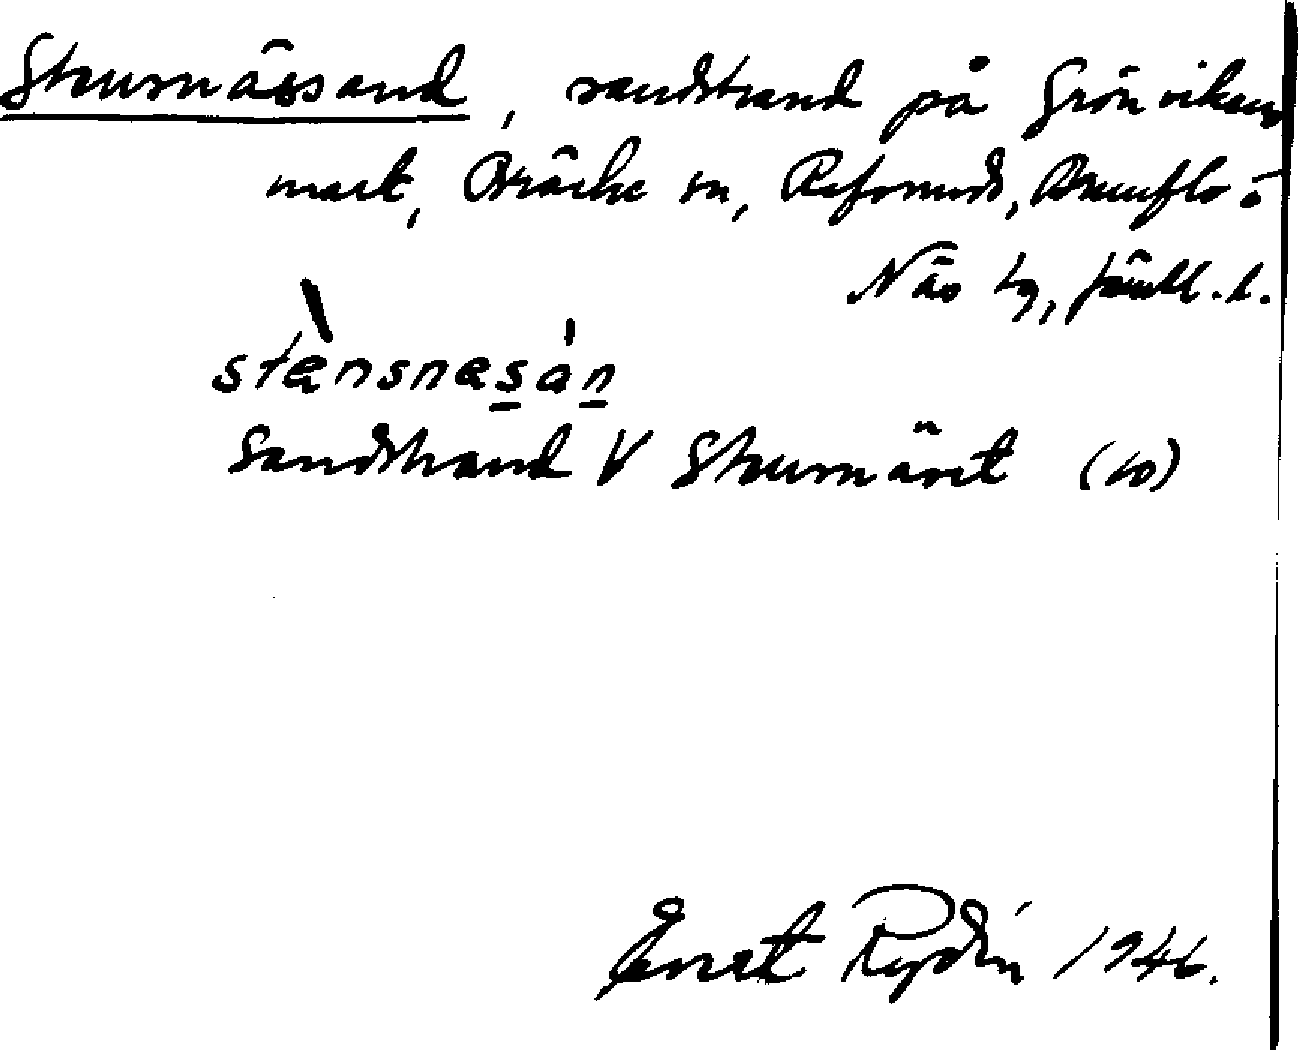 Stensnässand, sandstrand på Grönvikens
mark, Bräcke sn, Refsunds, Brunflo o
Näs tg, Jämtl. l.
stènsnæsàn
Sandstrand V Stensnäset (10)
Ernst Rydén 1946.